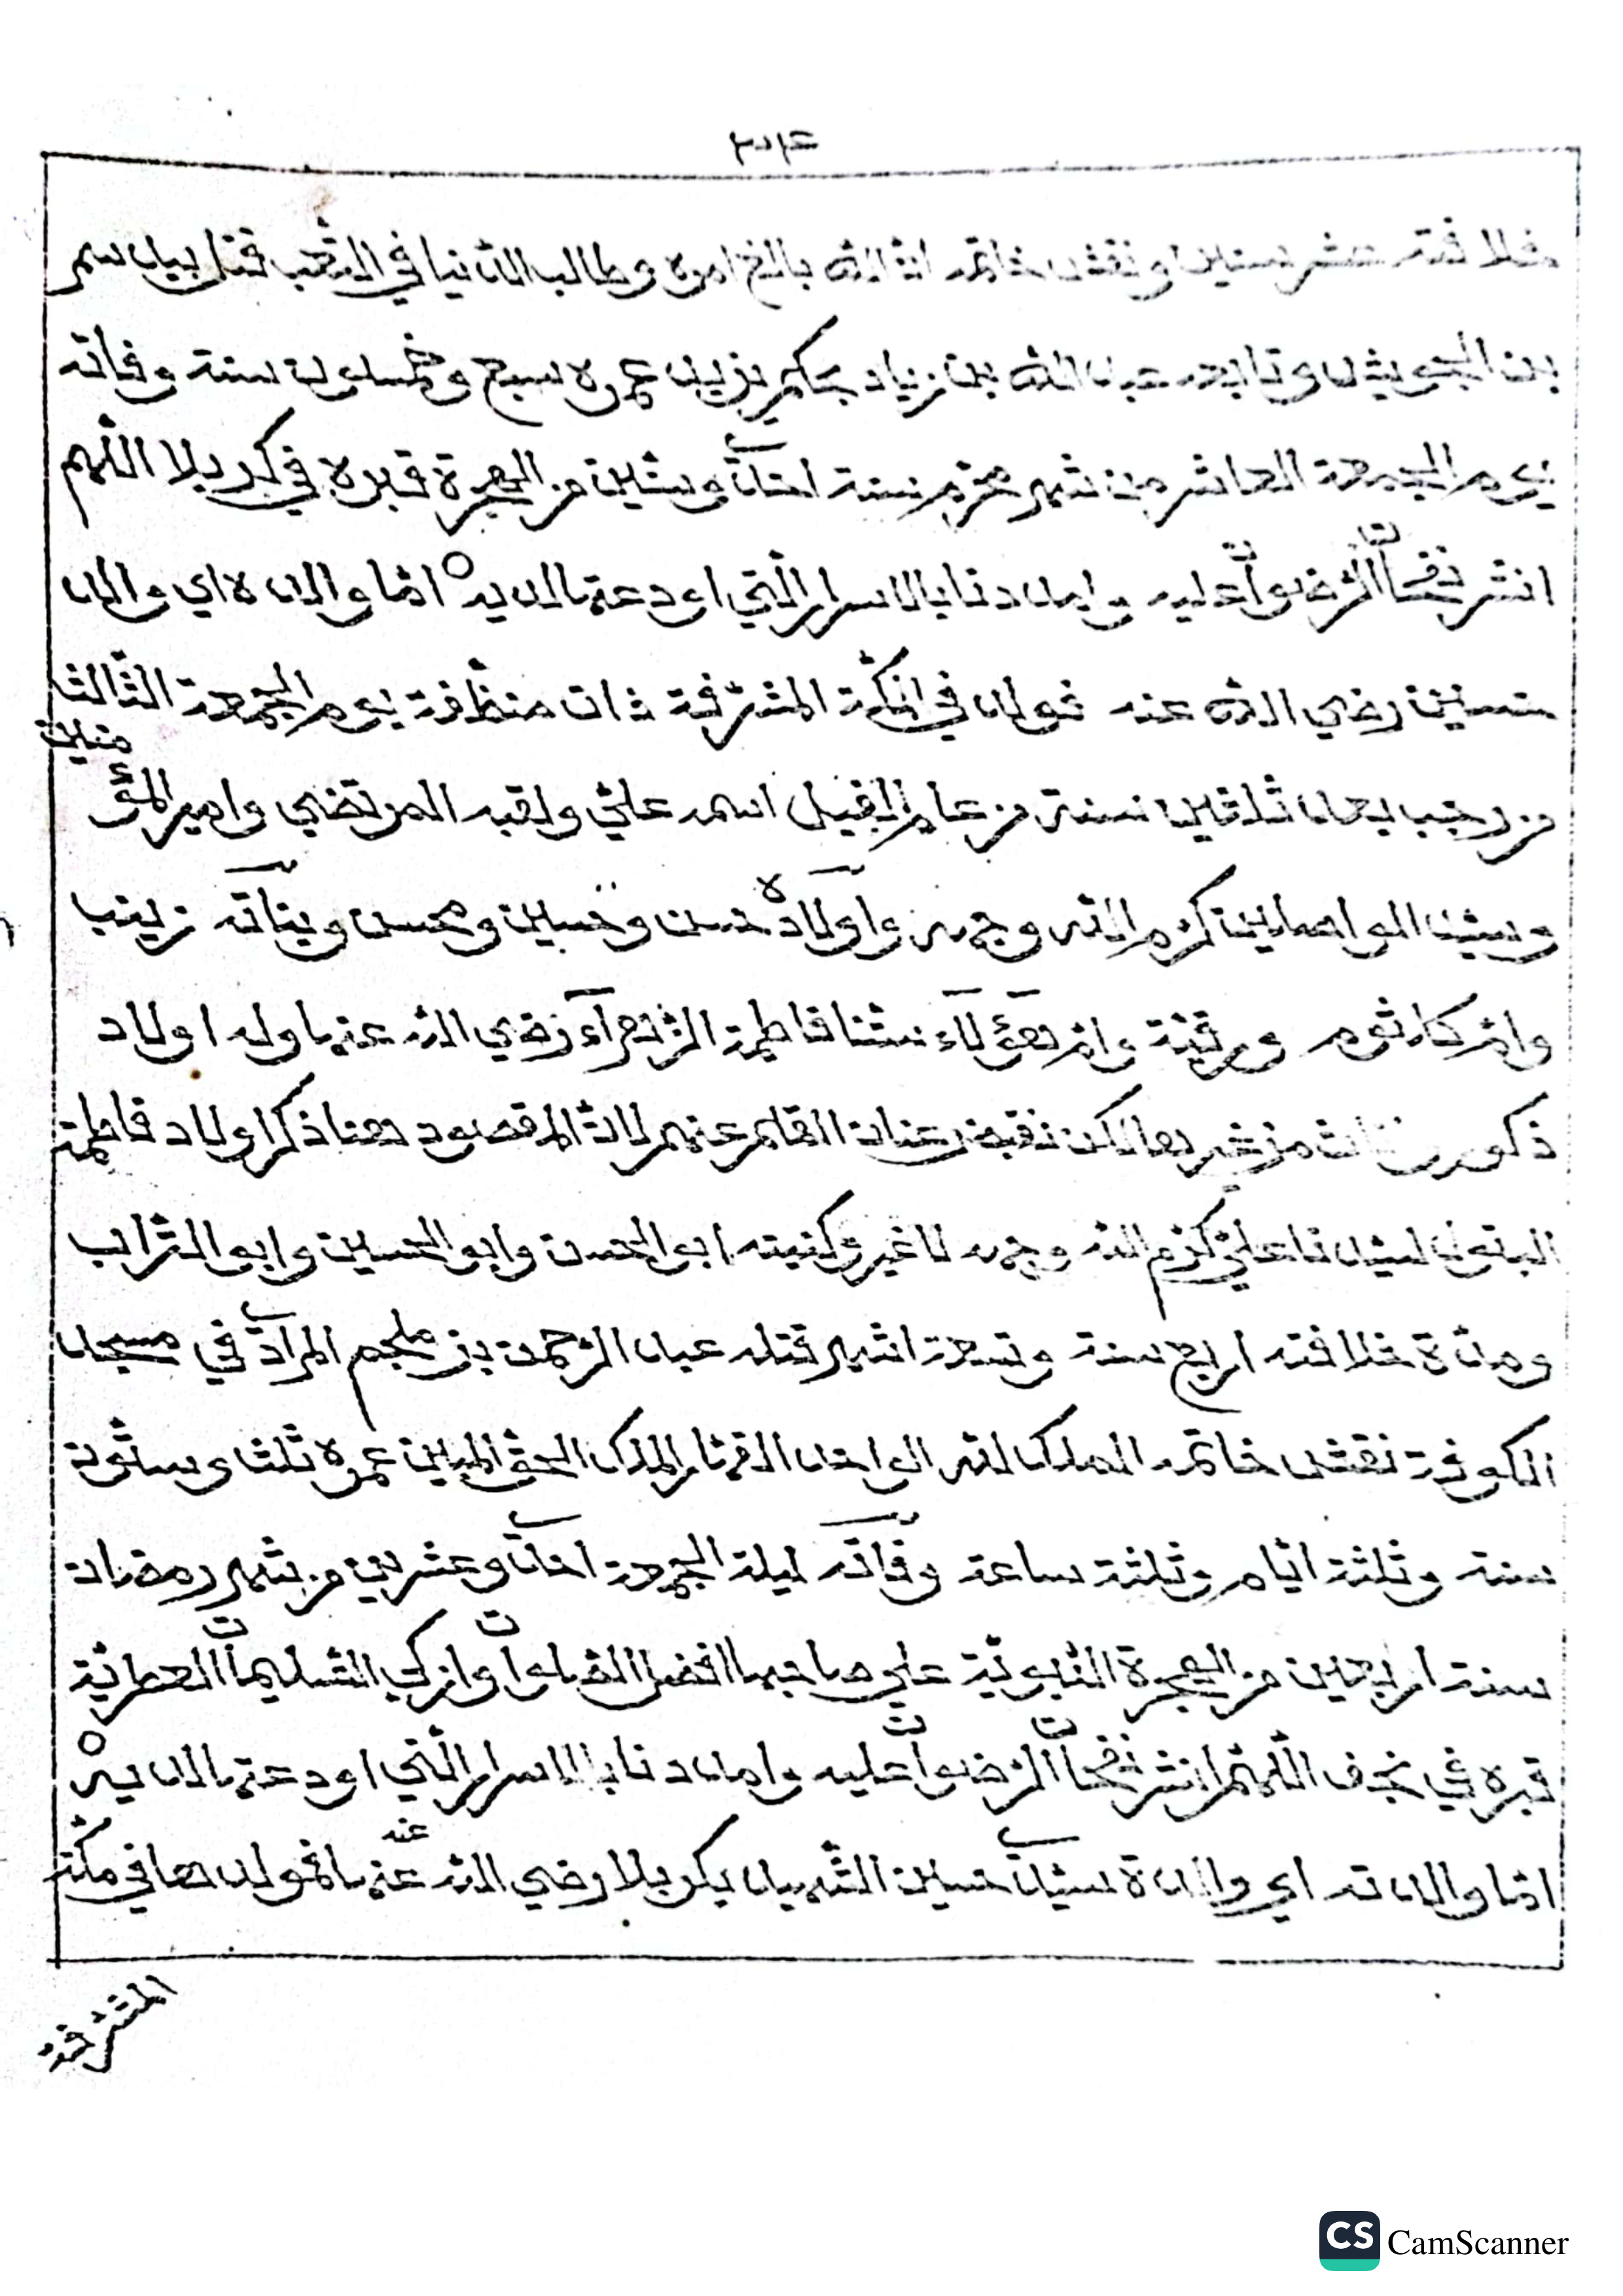 ٣٠٤
خلافته عشر سنين ونقش خاتمه ان الله بالغ امره وطالب الدنيا في التعب قتل بيد سمر
بن الجويش وتابعه عبد الله بن زياد بحكم يزيد عمره سبع وخمسون سنة وفاته
يوم الجمعة العاشر من شهر محرم سنة احدى وستين من الهجرة قبره في كربلا اللهم
انشر نفحات الرضوان عليه وامددنا بالاسرار التي اودعتها لديه اما والده اي والد
حسين رضي الله عنه فولد في مكة المشرفة ذات منظافة يوم الجمعة الثالث
من رجب بعد ثلاثين سنة من عام الفيل اسمه علي ولقبه المرتضى وامير المؤمنين
وسيد الواصلين كرم الله وجهه واولاده حسن وحسين ومحسن وبناته زينب
وام كلثوم ورقية وام هؤلاء ستنا فاطمة الزهراء رضي الله عنها وله اولاد
ذكور من غيرها لكن نقبض عنان القلم عنهم لان المقصود هنا ذكر اولاد فاطمة
البتول لسيدنا علي كرم الله وجهه لا غير وكنيته ابو الحسن وابو الحسين وابو التراب
ومدة خلافته اربع سنة وتسعة اشهر قتله عبد الرحمن بن ملجم المرادي في مسجد
الكوفة نقش خاتمه الملك لله الواحد القهار الملك الحق المبين عمره ثلث وستون
سنة وثلثة ايام وثلثة ساعة وفاته ليلة الجمعة احدى وعشرين من شهر رمضان
سنة اربعين من الهجرة النبوية على صاحبها افضل الصلوات وازكى التسليمات العطرية
قبره في نجف اللهم انشر نفحات الرضوان عليه وامددنا بالاسرار التي اودعتها لديه
اما والدته اي والدة سيدي حسين الشهيد بكربلا رضي الله عنه عنها فمولدها في مكة
المشرفة
CS CamScanner